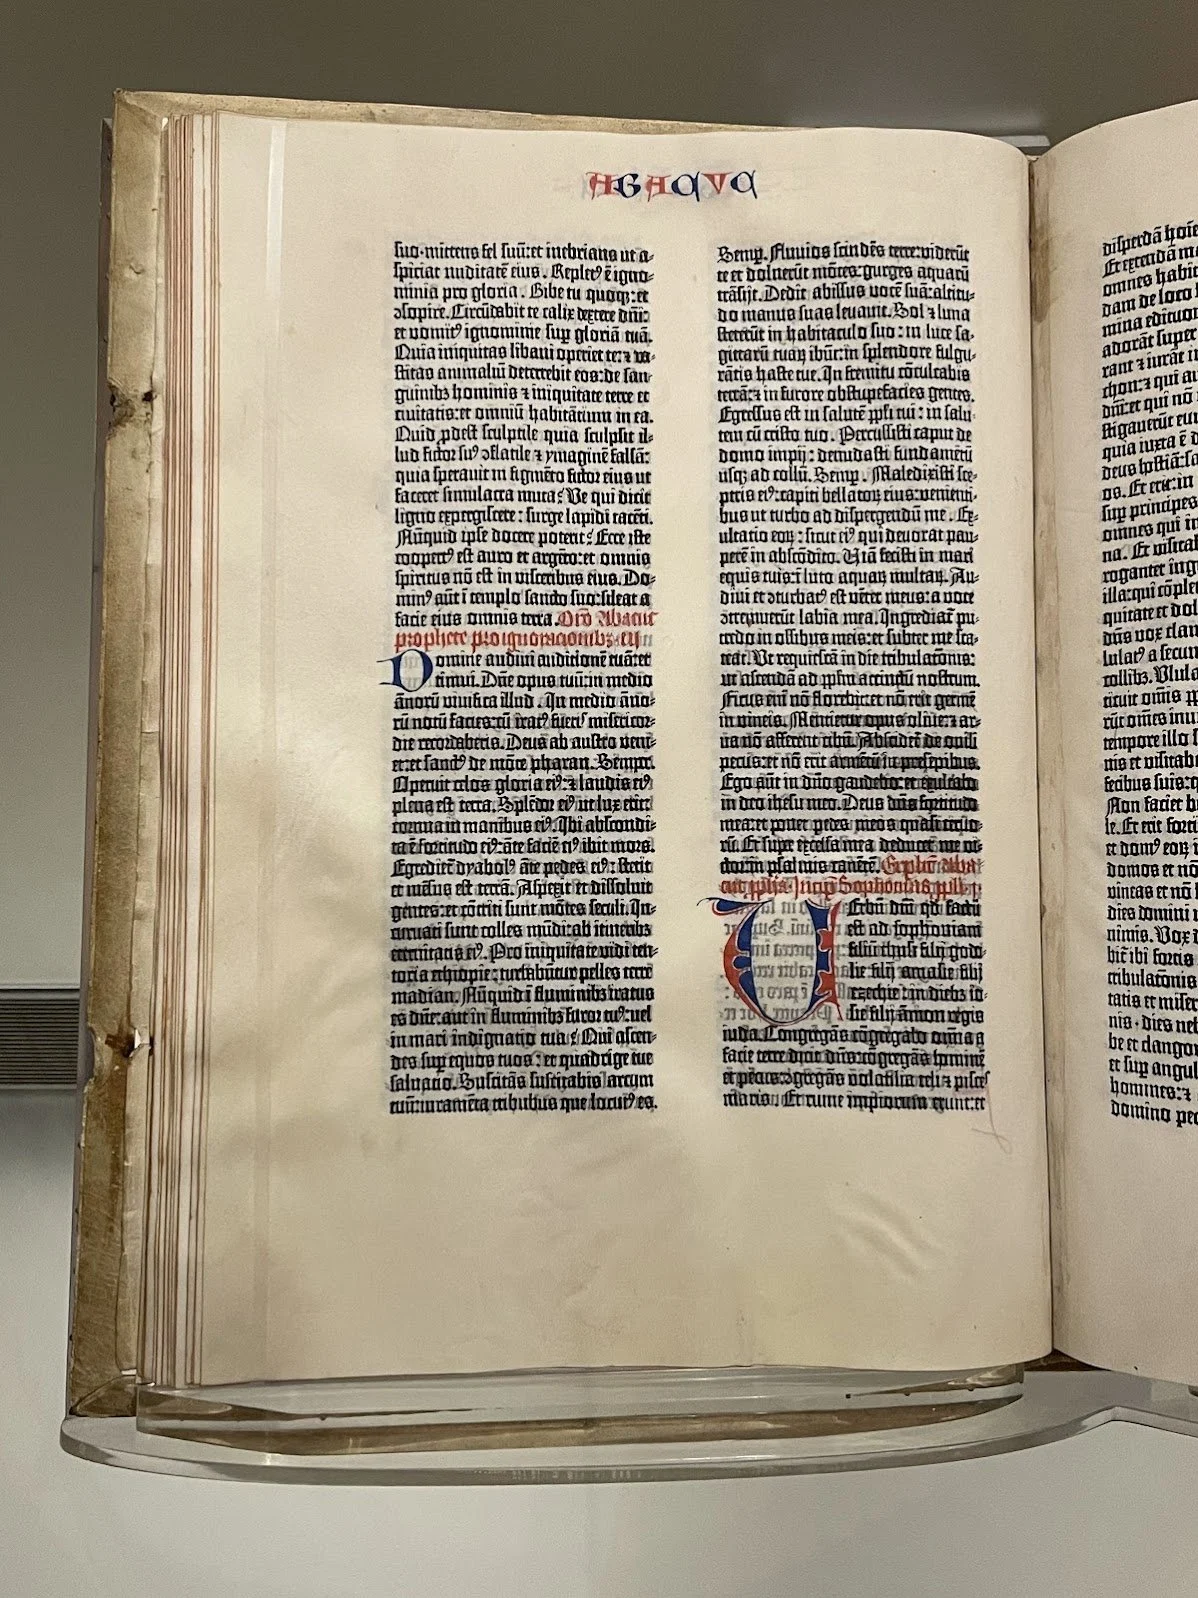 ABACVC
suo·mittens fel suū:et inebrians ut a-
spiciat nuditatē eius. Repletꝰ ē igno-
minia pro gloria. Bibe tu quoqꝫ:et
ꝯsopire. Circūdabit te calix dextere dñi:
et vomitꝰ ignominie suꝑ gloriā tuā.
Quia iniquitas libani operiet te:⁊ va-
stitas animaliū deterrebit eos:de san-
guinibꝫ hominis ⁊ iniquitate terre et
civitatis:et omniū habitātium in ea.
Quid ꝓdest sculptile quia sculpsit il-
lud fictor suꝰ ꝯflatile ⁊ ymaginē falsā:
quia speravit in figmēto fictor eius ut
faceret simulacra muta? Ve qui dicit
ligno expergiscere: surge lapidi tacēti.
Nūquid ipse docere poterit? Ecce iste
coopertꝰ est auro et argēto:et omnis
spiritus nō est in visceribus eius. Do-
minꝰ aūt ī templo sancto suo:sileat a
facie eius omnis terra. Orō Abacuc
prophete pro ignoracionibꝫ
Domine audivi auditionē tuā:et
timui. Dñe opus tuū:in medio
ānorū vivifica illud. In medio āno-
rū notū facies:cū iratꝰ fueris misericor-
die recordaberis. Deus ab austro veni-
et:et sanctꝰ de mōte pharan. Semper.
Operuit celos gloria eiꝰ:⁊ laudis eiꝰ
plena est terra. Splēdor eiꝰ ut lux erit:
cornua in manibus eiꝰ. Ibi abscondi-
ta ē fortitudo eiꝰ:āte faciē eiꝰ ibit mors.
Egredietͬ dyabolꝰ āte pedes eiꝰ: stetit
et mēsus est terrā. Aspexit et dissoluit
gentes:et cōtriti sunt mōtes seculi. In-
curvati sunt colles mūdi:ab itineribꝫ
eternitatis eiꝰ. Pro iniquitate vidi ten-
toria ethiopie: turbabūtur pelles terre
madian. Nūquid ī fluminibꝫ iratus
es dñe:aut in fluminibꝫ furor tuꝰ:vel
in mari indignatio tua? Qui ascen-
des suꝑ equos tuos: et quadrige tue
salvatio. Suscitās suscitabis arcum
tuū:iuramēta tribubus que locutꝰ es.
Semꝑ. Fluvios scindēs terre:viderūt
te et doluerūt mōtes:gurges aquarū
trāsijt. Dedit abissus vocē suā:altitu-
do manus suas levavit. Sol ⁊ luna
steterūt in habitaculo suo: in luce sa-
gittarū tuaꝝ ibūt:in splendore fulgu-
rātis haste tue. In fremitu cōculcabis
terrā:⁊ in furore obstupefacies gentes.
Egressus est in salutē ppli tui: in salu-
tem cū cristo tuo. Percussisti caput de
domo impij: denudasti fundamētū
usqꝫ ad collū. Semꝑ. Maledixisti sce-
ptris eiꝰ:capiti bellatoꝝ eius:venienti-
bus ut turbo ad dispergendū me. Ex-
ultatio eoꝝ: sicut eiꝰ qui devorat pau-
perē in abscōdito. Viā fecisti in mari
equis tuis:ī luto aquaꝝ multaꝝ. Au-
divi et ꝯturbatꝰ est venter meus:a voce
ꝯtremuerūt labia mea. Ingrediatͬ pu-
tredo in ossibus meis:et subter me sca-
teat. Ut requiescā in die tribulatōnis:
ut ascendā ad ppl̄m accinctū nostrum.
Ficus enī nō florebit:et nō erit germē
in vineis. Mentietur opus olive:⁊ ar-
va nō afferent cibū. Abscidetͬ de ovili
pecus:et nō erit armētū ī presepibus.
Ego aūt in dño gaudebo:et exultabo
in deo ihesu meo. Deus dñs fortitudo
mea:et ponet pedes meos quasi cervo-
rū. Et super excelsa mea deducet me vi-
ctor:in psalmis canētē. Explic̄ Aba
cuc ꝓph̄a. Incipit Sophonias
Verbū dñi qd̄ factū
est ad sophoniam
filiū chusi filij godo-
lie filij amasie filij
ezechie: in diebꝫ io-
sie filij āmon regis
iuda. Congregās cōgregabo omnia a
facie terre dicit dñs:cōgregās hominē
et pecus:ꝯgregās volatilia celi:⁊ pisces
maris. Et ruine impiorum erunt:et
disperdā hoīe
Et extendā ma
omnes habit
dam de loco h
mina edituor
adorāt super
rant ⁊ iurāt in
chon:⁊ qui av
dñi:et qui nō
stigaverūt eum
quia iuxta ē d
deus hostiā:sa
os. Et erit:in
suꝑ principes
omnes qui in
na. Et visitab
roganter ingr
illa:qui cōplet
quitate et dol
dñs vox clam
lulatꝰ a secun
collibꝫ. Ululat
ticuit omīs pp
rūt omēs invo
tempore illo s
nis et visitabo
fecibus suis:q
Non faciet be
le. Et erit forti
et domꝰ eoꝝ i
domos et nō
vineas et nō b
dies domini m
nimis. Vox d
bitͬ ibi fortis
tribulatōnis
tatis et miserie
nis·dies neb
be et clangor
et suꝑ angul
homines:⁊
domino pec